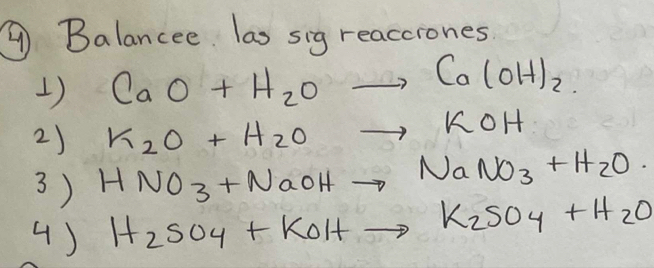 4) Balancee. las sig reacciones.
1) CaO + H₂O → Ca(OH)₂.
2) K₂O + H₂O → KOH
3) HNO₃ + NaOH → NaNO₃ + H₂O.
4) H₂SO₄ + KOH → K₂SO₄ + H₂O